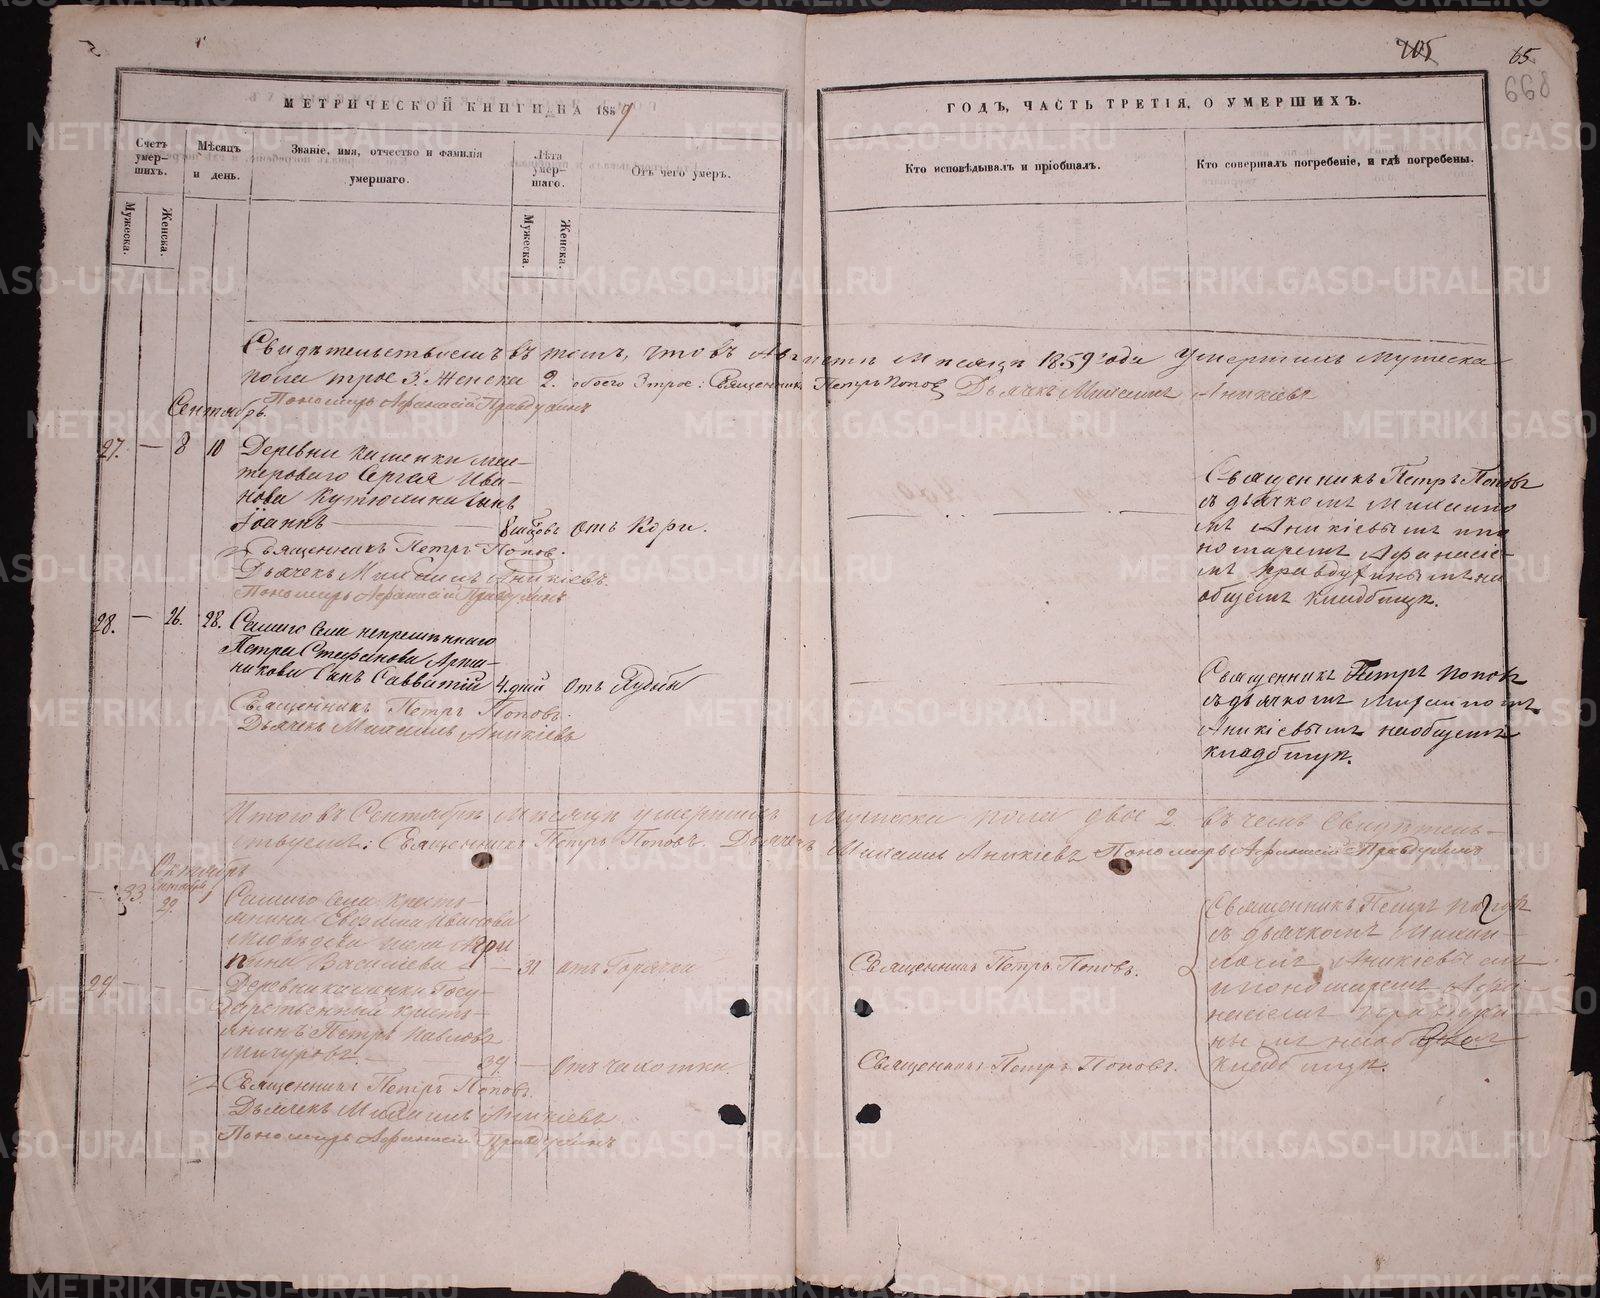 705
65
668
МЕТРИЧЕСКОЙ КНИГИ НА 1859
ГОДЪ, ЧАСТЬ ТРЕТІЯ, О УМЕРШИХЪ.
Счетъ умер-
шихъ.
Мужеска.
Женска.
Мѣсяцъ
и день.
Званіе, имя, отчество и фамилія
умершаго.
Лѣта
умер-
шаго.
Мужеска.
Женска.
Отъ чего умеръ.
Кто исповѣдывалъ и пріобщалъ.
Кто совершалъ погребеніе, и гдѣ погребены.
Свидѣтельствуемъ въ томъ, что въ Августѣ Мѣсяцѣ 1859 года умершихъ мужеска
пола трое 3. Женска 2. обоего : Священникъ Петръ Поповъ Дьячекъ Аникіевъ
Пономарь Афанасій Правдухинъ
Сентябрь
27. — 8 10 Деревни Каменки мас-
тероваго Сергея Ива-
нова сынъ
Іоаннъ — 8 мѣсцовъ отъ Кори.
Священникъ Петръ Поповъ
съ дьячкомъ
Аникіевымъ и по-
номаремъ Афанасіе-
мъ Правдухинымъ на
общемъ кладбищѣ.
Священникъ Петръ Поповъ.
Дьячекъ Аникіевъ.
Пономарь Афанасій Правдухинъ
28. — 26. 28. Самаго села непремѣннаго
Петра Стефанова
сынъ Савватій 4. дней отъ
Священникъ Петръ Поповъ
съ дьячкомъ
Аникіевымъ на общемъ
кладбищѣ.
Священникъ Петръ Поповъ.
Дьячекъ Аникіевъ
Итого въ Сентябрѣ Мѣсяцѣ умершихъ Мужеска пола двое 2 въ чемъ Свидѣтель-
ствуемъ: Священникъ Петръ Поповъ. Дьячекъ Аникіевъ Пономарь Афанасій Правдухинъ
Октябрь
— 33. Сентября 29. 1 Самаго села кресть-
янина Иванова
жена
Васильева — 31 отъ Горячки
Священникъ Петръ Поповъ.
Священникъ Петръ
съ дьячкомъ
Аникіевымъ
и пономаремъ Афа-
насіемъ Правдухи-
нымъ на общемъ
кладбищѣ.
29 — Деревни Каменки Госу-
дарственный кресть-
янинъ Петръ Павловъ
Мичуровъ — 39 — отъ чахотки.
Священникъ Петръ Поповъ.
Священникъ Петръ Поповъ.
Дьячекъ Аникіевъ
Пономарь Афанасій Правдухинъ
METRIKI.GASO-URAL.RU